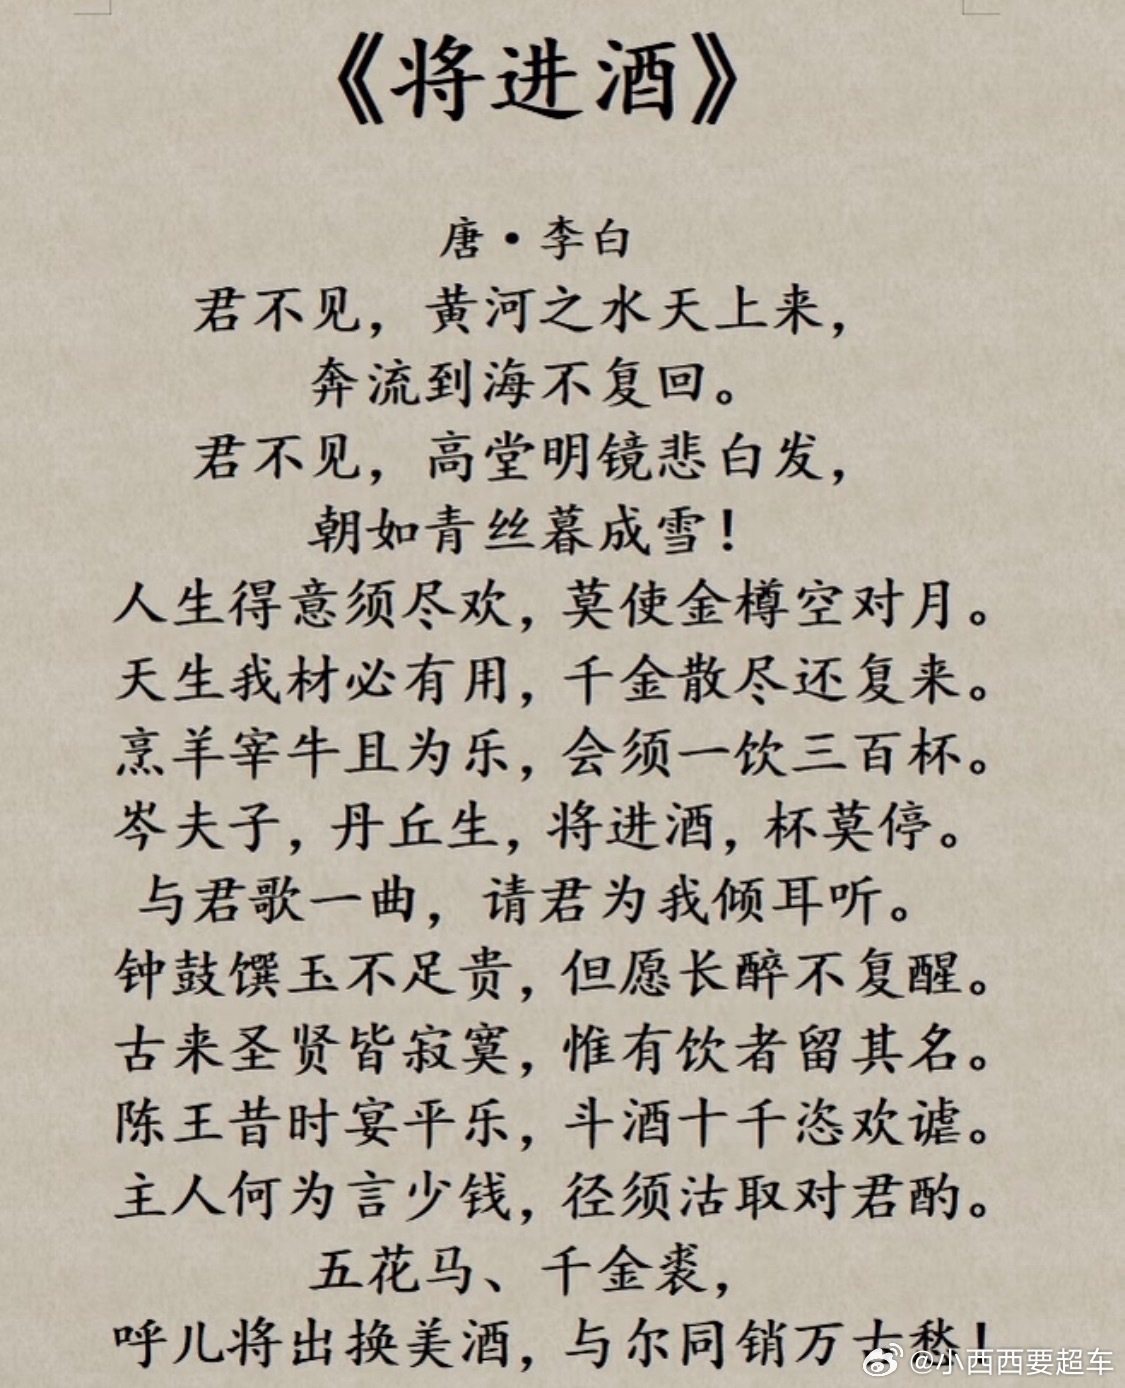 《将进酒》
唐·李白
君不见，黄河之水天上来，
奔流到海不复回。
君不见，高堂明镜悲白发，
朝如青丝暮成雪！
人生得意须尽欢，莫使金樽空对月。
天生我材必有用，千金散尽还复来。
烹羊宰牛且为乐，会须一饮三百杯。
岑夫子，丹丘生，将进酒，杯莫停。
与君歌一曲，请君为我倾耳听。
钟鼓馔玉不足贵，但愿长醉不复醒。
古来圣贤皆寂寞，惟有饮者留其名。
陈王昔时宴平乐，斗酒十千恣欢谑。
主人何为言少钱，径须沽取对君酌。
五花马、千金裘，
呼儿将出换美酒，与尔同销万古愁！
@小西西要超车